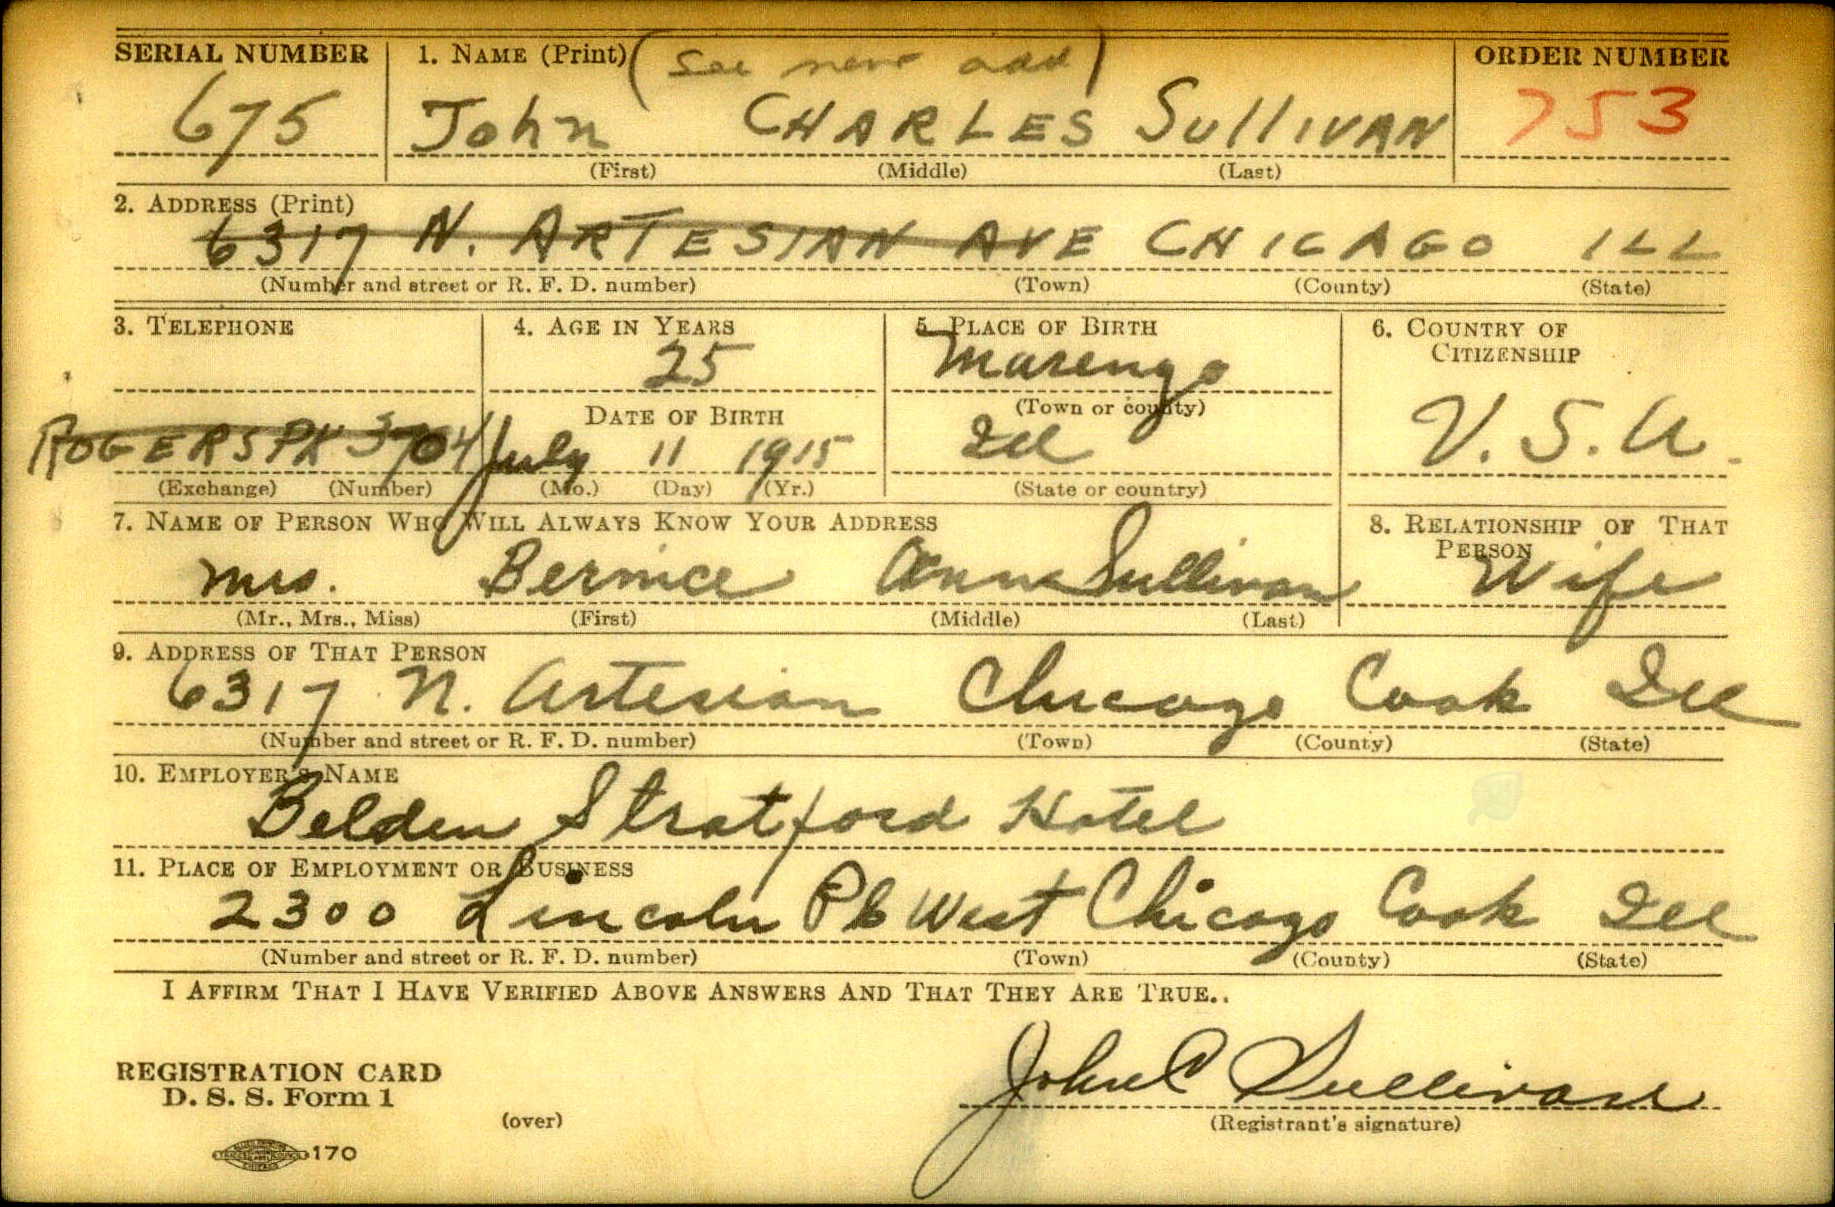 SERIAL NUMBER 1. NAME (Print) (See new add) ORDER NUMBER
675 John CHARLES SullIVAN 753
(First) (Middle) (Last)
2. ADDRESS (Print)
6317 N. ARTESIAN AVE CHICAGO ILL
(Number and street or R. F. D. number) (Town) (County) (State)
3. TELEPHONE 4. AGE IN YEARS 5. PLACE OF BIRTH 6. COUNTRY OF
CITIZENSHIP
25 Marengo
DATE OF BIRTH (Town or county)
ROGERS PK 3704 July 11 1915 Ill U.S.A.
(Exchange) (Number) (Mo.) (Day) (Yr.) (State or country)
7. NAME OF PERSON WHO WILL ALWAYS KNOW YOUR ADDRESS 8. RELATIONSHIP OF THAT
PERSON
Mrs. Bernice Ann Sullivan Wife
(Mr., Mrs., Miss) (First) (Middle) (Last)
9. ADDRESS OF THAT PERSON
6317 N. Artesian Chicago Cook Ill
(Number and street or R. F. D. number) (Town) (County) (State)
10. EMPLOYER'S NAME
Belden Stratford Hotel
11. PLACE OF EMPLOYMENT OR BUSINESS
2300 Lincoln Pk West Chicago Cook Ill
(Number and street or R. F. D. number) (Town) (County) (State)
I AFFIRM THAT I HAVE VERIFIED ABOVE ANSWERS AND THAT THEY ARE TRUE..
John C Sullivan
REGISTRATION CARD
D. S. S. Form 1
(over) (Registrant's signature)
170